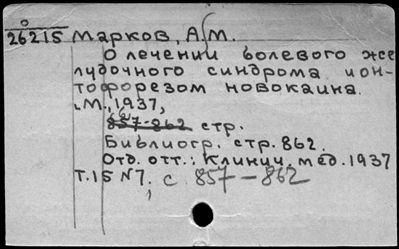 О
26215 Марков, А.М.
О лечении болевого же
лудочного синдрома ион-
тофорезом новокаина.
М., 1937,
857-862 стр.
Библиогр. стр. 862.
Отд. отт.: Клинич. мед. 1937
Т.15 N7; с. 857-862